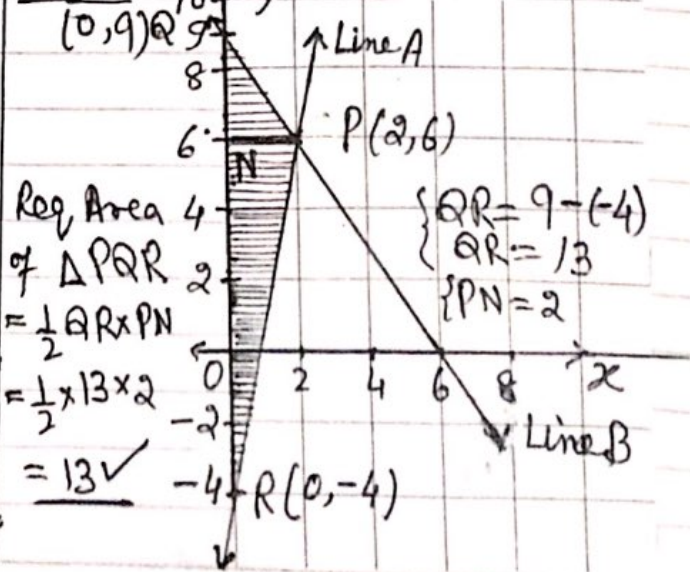 (0,9)Q 9
Line A
8
6
P(2,6)
N
Req Area
of ΔPQR
= 1/2 QR×PN
= 1/2 ×13×2
= 13 ✓
{QR = 9-(-4)
{QR = 13
{PN = 2
4
2
0 2 4 6 8 x
-2
Line B
-4
R(0,-4)